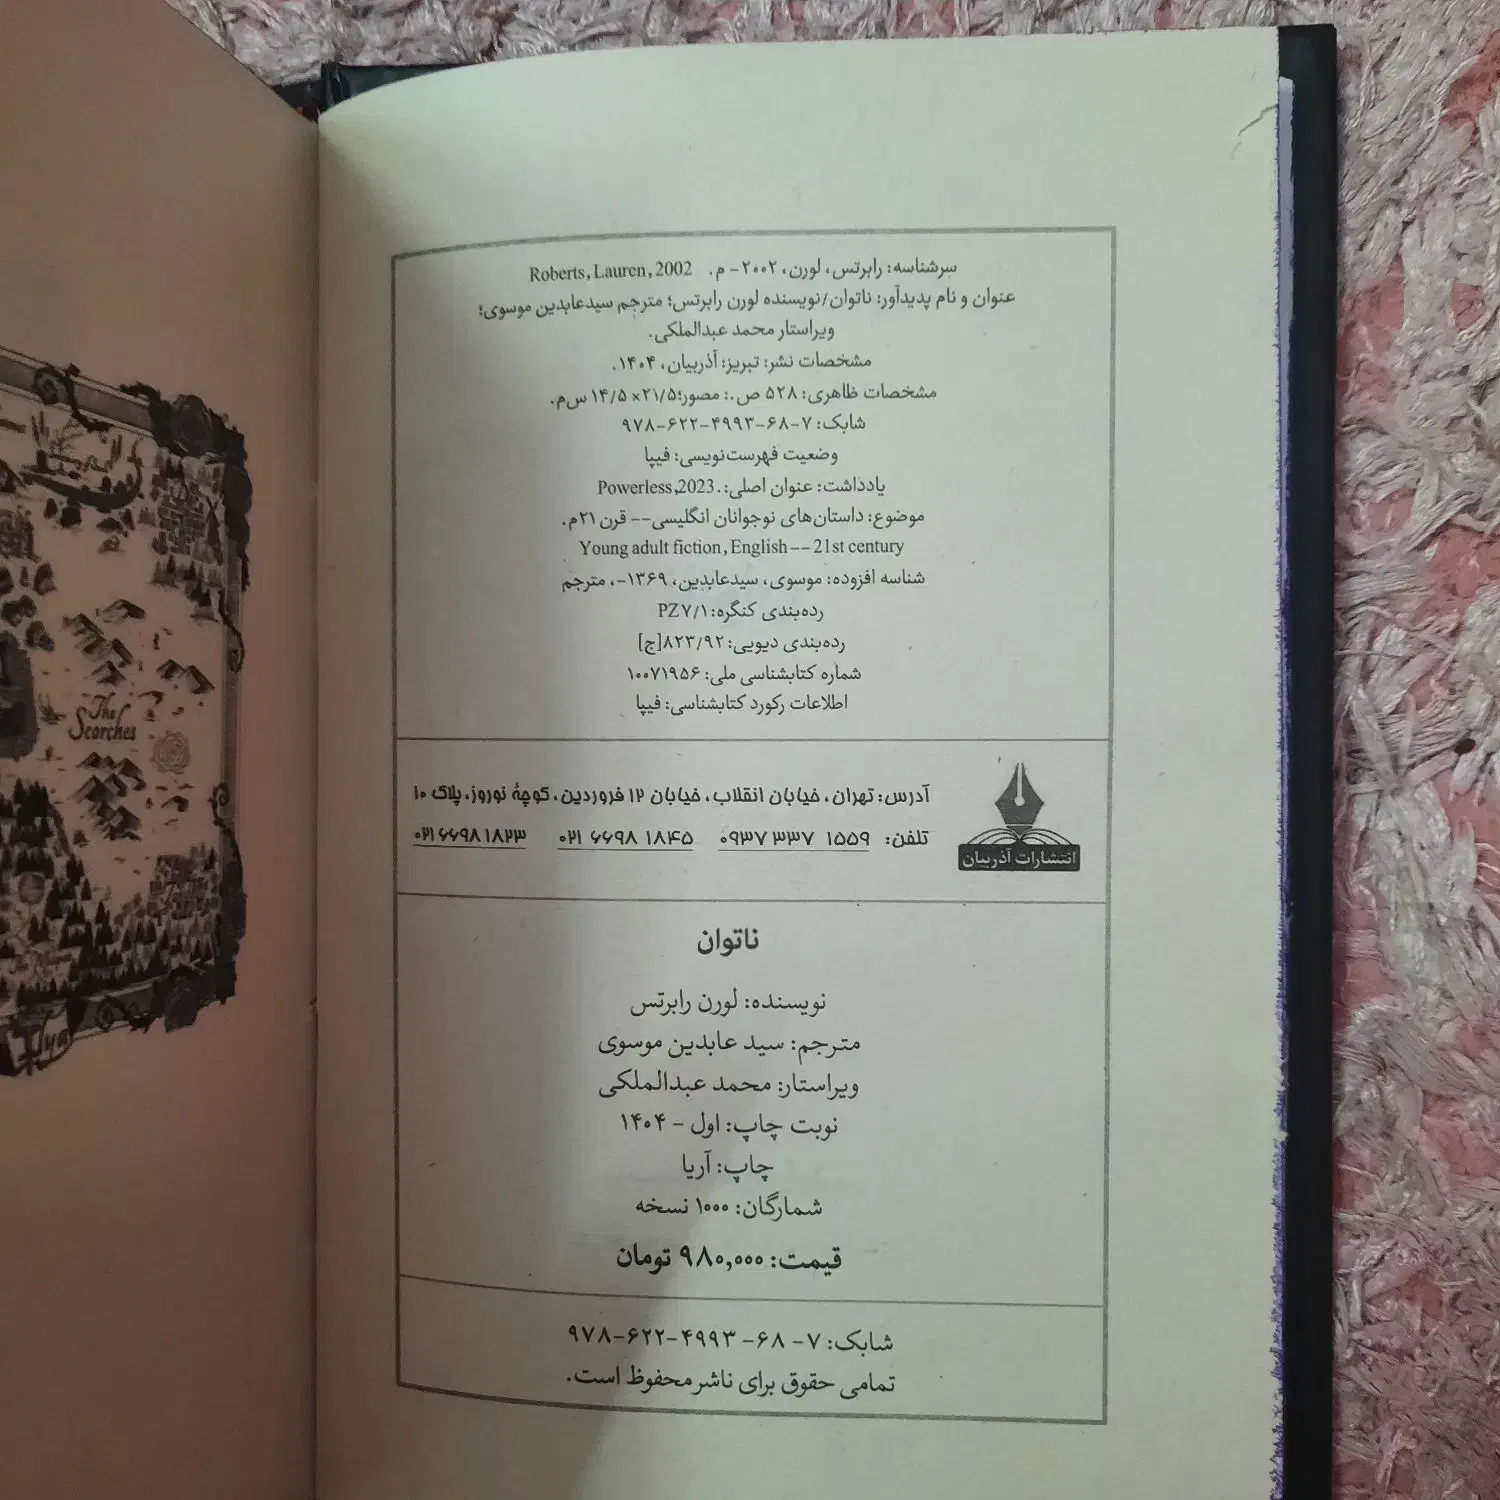 The Scorches
Ilya
سرشناسه: رابرتس، لورن، ۲۰۰۲- م. Roberts, Lauren, 2002
عنوان و نام پدیدآور: ناتوان/نویسنده لورن رابرتس؛ مترجم سیدعابدین موسوی؛
ویراستار محمد عبدالملکی.
مشخصات نشر: تبریز: آذربیان، ۱۴۰۴.
مشخصات ظاهری: ۵۲۸ ص.: مصور؛۲۱/۵×۱۴/۵ س‌م.
شابک: ۷-۶۸-۴۹۹۳-۶۲۲-۹۷۸
وضعیت فهرست‌نویسی: فیپا
یادداشت: عنوان اصلی: .Powerless,2023
موضوع: داستان‌های نوجوانان انگلیسی-- قرن ۲۱م.
Young adult fiction, English -- 21st century
شناسه افزوده: موسوی، سیدعابدین، ۱۳۶۹-، مترجم
رده‌بندی کنگره: PZ۷/۱
رده‌بندی دیویی: ۸۲۳/۹۲[ج]
شماره کتابشناسی ملی: ۱۰۰۷۱۹۵۶
اطلاعات رکورد کتابشناسی: فیپا
آدرس: تهران، خیابان انقلاب، خیابان ۱۲ فروردین، کوچهٔ نوروز، پلاک ۱۰
تلفن: ۰۹۳۷ ۳۳۷ ۱۵۵۹ ۰۲۱ ۶۶۹۸ ۱۸۴۵ ۰۲۱ ۶۶۹۸ ۱۸۲۳
انتشارات آذربیان
ناتوان
نویسنده: لورن رابرتس
مترجم: سید عابدین موسوی
ویراستار: محمد عبدالملکی
نوبت چاپ: اول - ۱۴۰۴
چاپ: آریا
شمارگان: ۱۰۰۰ نسخه
قیمت: ۹۸۰,۰۰۰ تومان
شابک: ۷- ۶۸- ۴۹۹۳-۶۲۲-۹۷۸
تمامی حقوق برای ناشر محفوظ است.